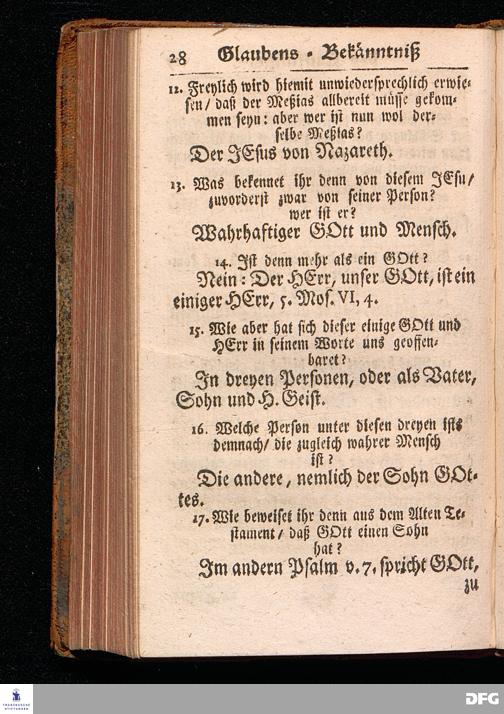 28 Glaubens-Bekänntniß
12. Freylich wird hiemit unwiedersprechlich erwie-
sen/ daß der Meßias allbereit müsse gekom-
men seyn: aber wer ist nun wol der-
selbe Meßias?
Der JEsus von Nazareth.
13. Was bekennet ihr denn von diesem JEsu/
zuvorderst zwar von seiner Person?
wer ist er?
Wahrhaftiger GOtt und Mensch.
14. Ist denn mehr als ein GOtt?
Nein: Der HErr, unser GOtt, ist ein
einiger HErr, 5. Mos. VI, 4.
15. Wie aber hat sich dieser einige GOtt und
HErr in seinem Worte uns geoffen-
baret?
In dreyen Personen, oder als Vater,
Sohn und H. Geist.
16. Welche Person unter diesen dreyen ists
demnach/ die zugleich wahrer Mensch
ist?
Die andere, nemlich der Sohn GOt-
tes.
17. Wie beweiset ihr denn aus dem Alten Te-
stament/ daß GOtt einen Sohn
hat?
Im andern Psalm v. 7. spricht GOtt,
zu
FRANCKESCHE
STIFTUNGEN
DFG